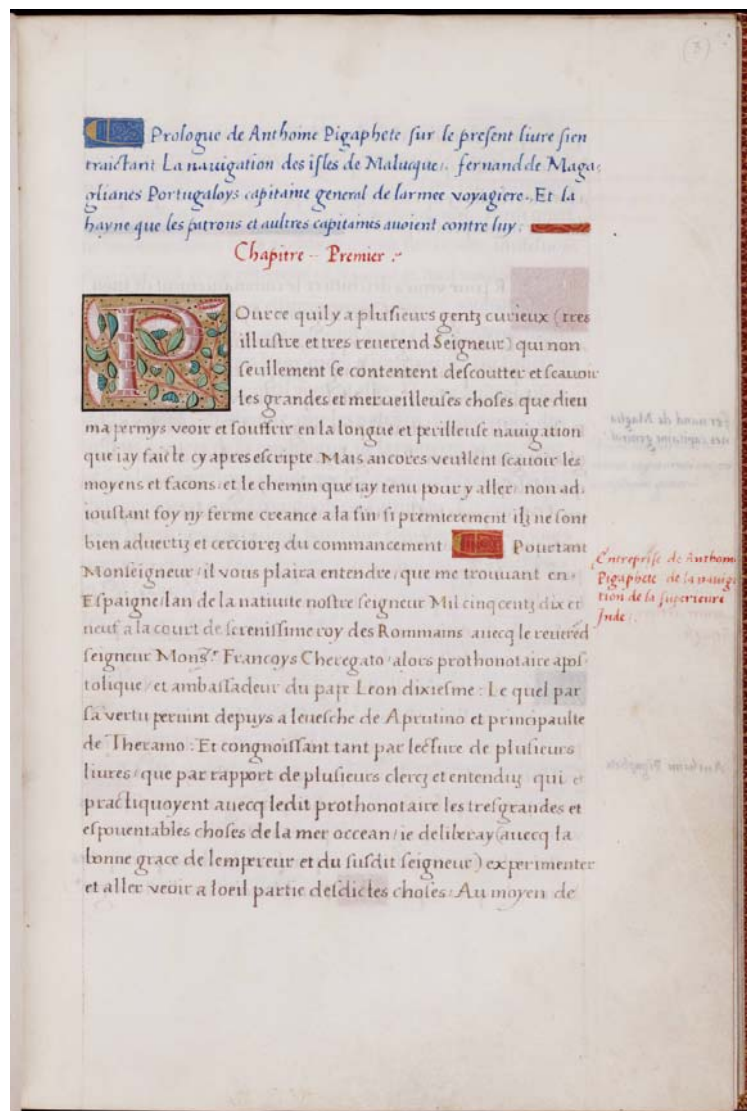 (3)
Prologue de Anthoine Pigaphete sur le present liure sien
traictant La nauigation des isles de Malucque. fernand de Maga-
glianes Portugaloys capitaine general de larmee voyagiere. Et la
hayne que les patrons et aultres capitaines auoient contre luy:
Chapitre - Premier :-
Pource quil y a plusieurs gentz curieux (tres
illustre et tres reuerend Seigneur) qui non
seullement se contentent descoutter et scauoir
les grandes et merueilleuses choses que dieu
ma permys veoir et souffrir en la longue et perilleuse nauigation
que iay faicte cy apres escripte. Mais ancores veullent scauoir les
moyens et facons/ et le chemin que iay tenu pour y aller/ non ad-
ioustant foy ny ferme creance a la fin si premierement ilz ne sont
bien aduertiz et cerciorez du commancement Pourtant
Monseigneur/ il vous plaira entendre/ que me trouuant en
Espaigne lan de la natiuite nostre seigneur Mil cinq centz dix et
neuf a la court de serenissime roy des Rommains auecq le reuerēd
seigneur Monsr. Francoys Cheregato/ alors prothonotaire apos-
tolique/ et ambassadeur du pape Leon dixiesme: Le quel par
sa vertu peruint depuys a leuesche de Aprutino et principaulte
de Theramo: Et congnoissant tant par lecture de plusieurs
liures/ que par rapport de plusieurs clercz et entenduz qui
practiquoyent auecq ledit prothonotaire les tresgrandes et
espouentables choses de la mer occean/ ie deliberay (auecq la
bonne grace de lempereur et du susdit seigneur) experimenter
et aller veoir a loeil partie desdictes choses: Au moyen de
Entreprise de Anthoin
Pigaphete de la nauig
tion de la superieure
Inde: